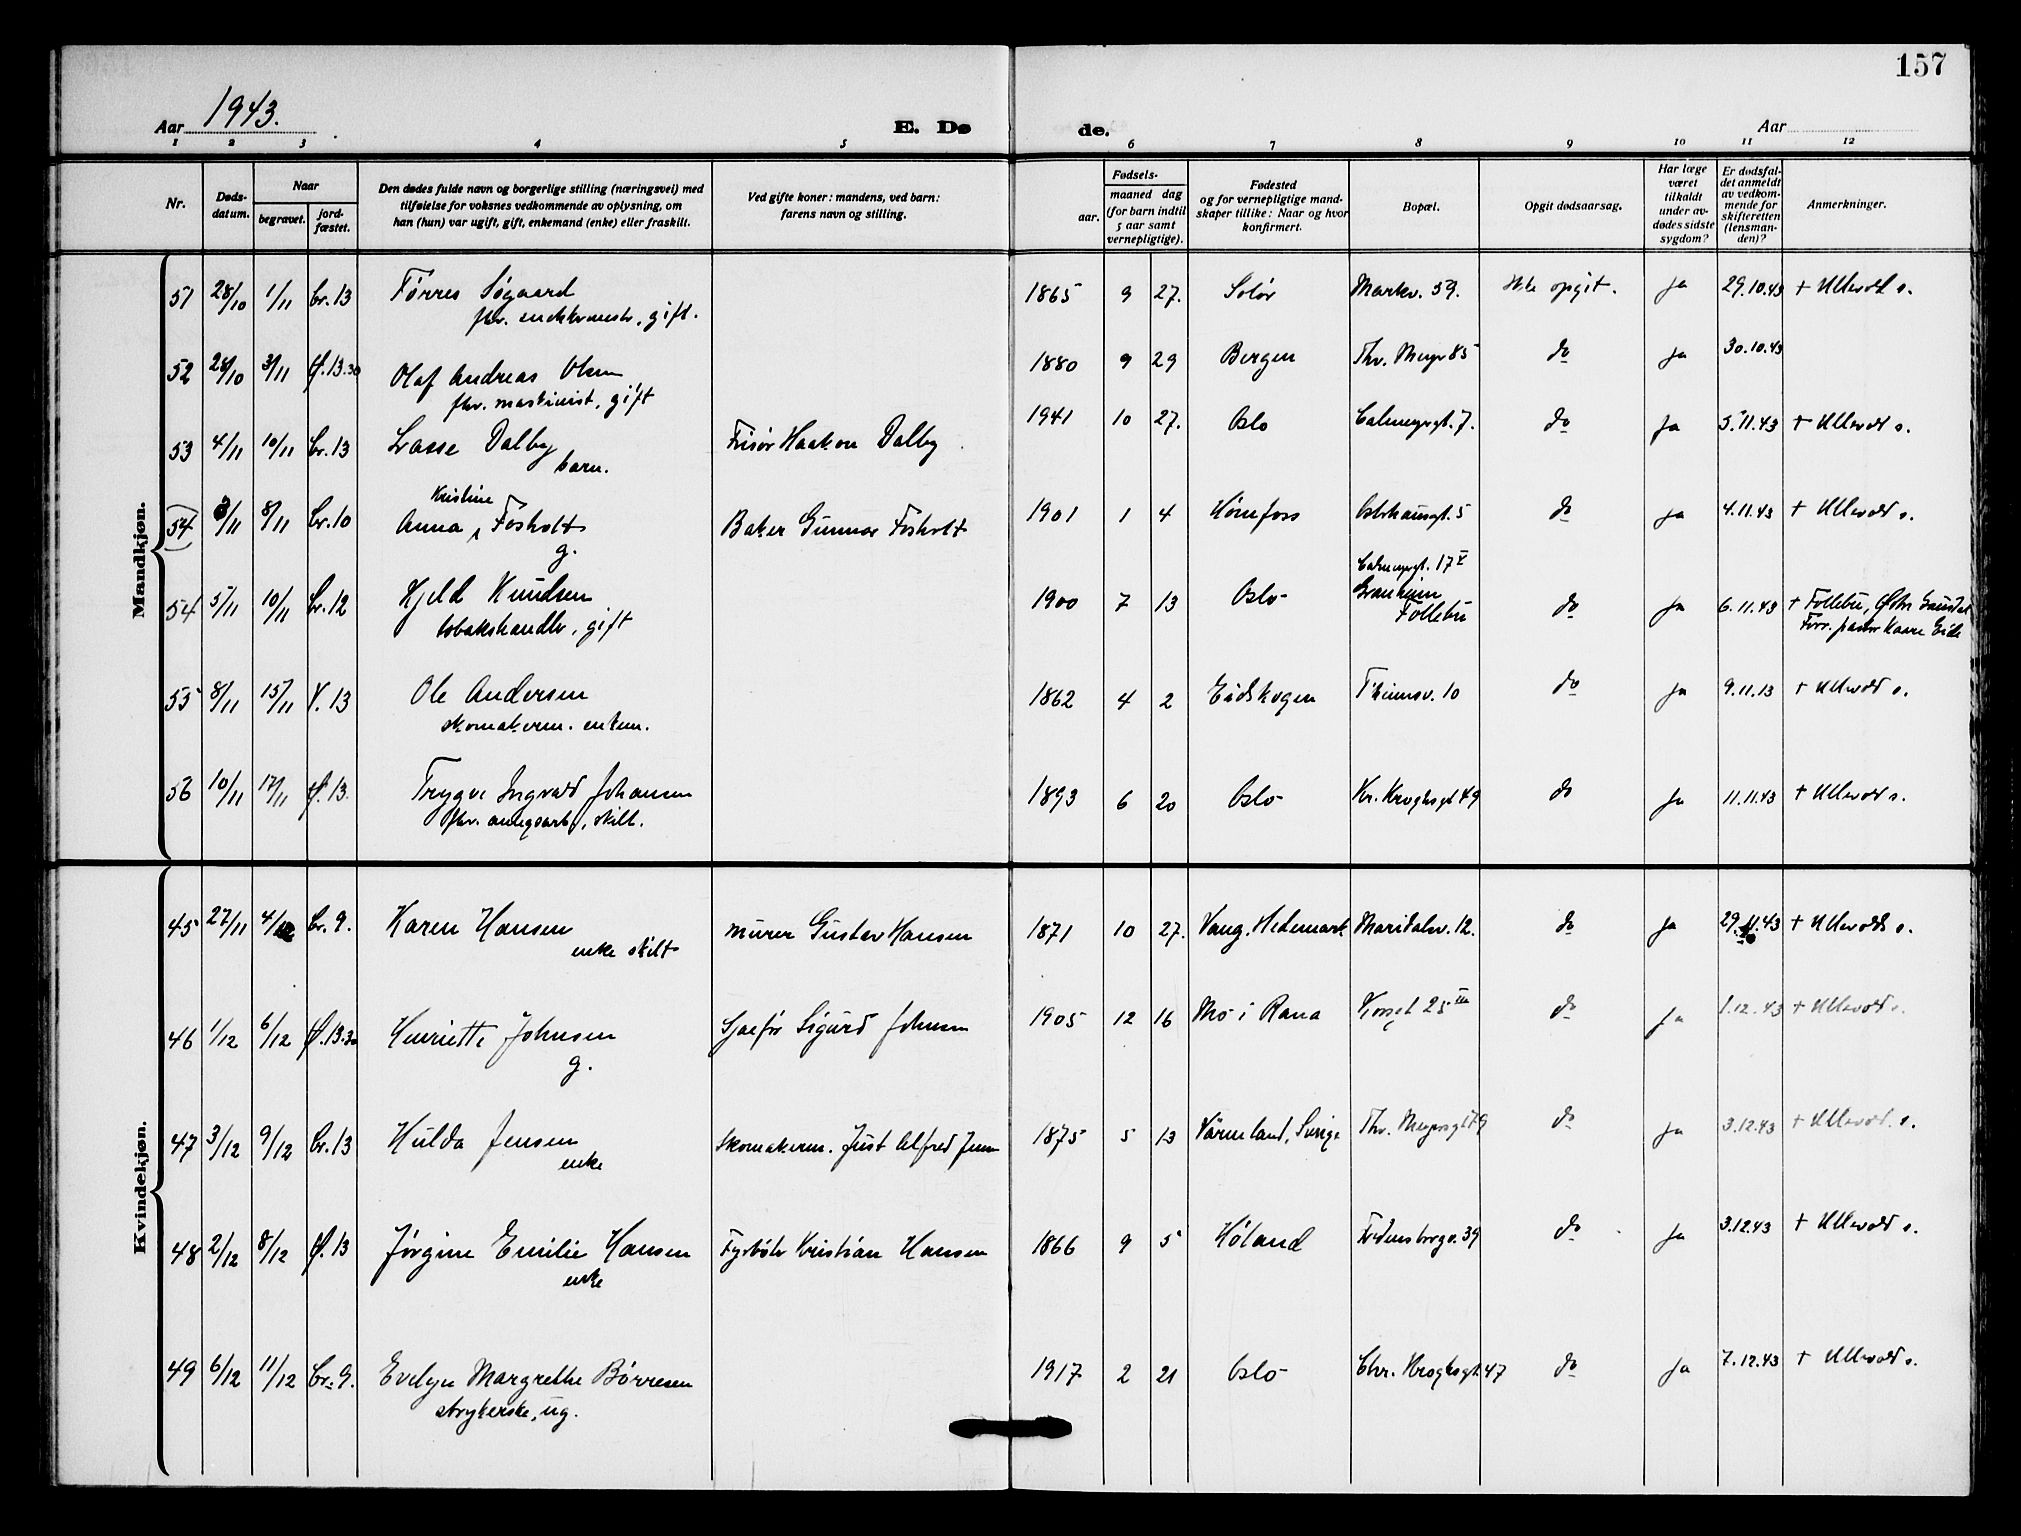 157
Aar 1943.
E. Dø de.
Aar
1 2 3 4 5 6 7 8 9 10 11 12
Nr.
Døds-
datum.
Naar
begravet.
jord-
fæstet.
Den dødes fulde navn og borgerlige stilling (næringsvei) med
tilføielse for voksnes vedkommende av oplysning, om
han (hun) var ugift, gift, enkemand (enke) eller fraskilt.
Ved gifte koner: mandens, ved barn:
farens navn og stilling.
Fødsels-
aar.
maaned dag
(for barn indtil
5 aar samt
vernepligtige).
Fødested
og for vernepligtige mand-
skaper tillike: Naar og hvor
konfirmert.
Bopæl.
Opgit dødsaarsag.
Har læge
været
tilkaldt
under av-
dødes sidste
sygdom?
Er dødsfal-
det anmeldt
av vedkom-
mende for
skifteretten
(lensman-
den)?
Anmerkninger.
Mandkjøn.
51 28/10 1/11 br. 13 Tørres Søgaard 1865 9 27. Solør Markv. 59. Ikke opgit. ja 29.10.43 + Ullevål s.
fhv. gift.
52 28/10 3/11 13.30 Olaf Andreas Olsen 1880 9 29 Bergen Thv. Meyr 85 do ja 30.10.43
fhv. maskinist, gift
53 4/11 10/11 br. 13 Lasse Dalby Frisør Haakon Dalby 1941 10 27. Oslo Calmeyrgt. 7. do ja 5.11.43 + Ullevål s.
barn.
Kristine
54 3/11 8/11 br. 10 Anna Fosholt Baker Gunnar Fosholt 1901 1 4 Hønefoss 5 do ja 4.11.43 + Ullevål s.
g.
Calmeyrgt. 17 V
54 5/11 10/11 br. 12 Kjeld Knudsen 1900 7 13 Oslo Granheim do ja 6.11.43 + Follebu, Østre Gausdal
tobakshandler, gift Follebu Forr. pastor Kaare Eide
55 8/11 15/11 V. 13 Ole Andersen 1862 4 2 Eidskogen Thimsv. 10 do ja 9.11.13 + Ullevål s.
skomakerm. enkem.
56 10/11 17/11 13. Trygve Ingvald Johansen 1893 6 20 Oslo Kr. Kroghsgt 49 do ja 11.11.43 + Ullevål s.
fhv. anlegsarb., skilt.
Kvindekjøn.
45 27/11 4/12 br. 9. Karen Hansen murer Gustav Hansen 1871 10 27. Vang. Hedemark Maridalsv. 12. do ja 29.11.43 + Ullevåls s.
enke skilt
46 1/12 6/12 13.30 Henriette Johnsen Sjaafør Sigurd Johnsen 1905 12 16 Mo i Rana Korsgt 25 III do ja 1.12.43 + Ullevål s.
g.
47 3/12 9/12 br. 13 Hulda Jensen Skomakerm. Just Alfred Jensen 1875 5 13 Värmland, Sverige Thv. Meyersgt 79 do ja 3.12.43 + Ullevål s.
enke
48 2/12 8/12 13 Jørgine Emilie Hansen Fyrbøter Kristian Hansen 1866 9 5 Høland Fredensborgv. 39 do ja 3.12.43 + Ullevål s.
enke
49 6/12 11/12 br. 9. Evelyn Margrethe Børresen 1917 2 21 Oslo Chr. Kroghsgt 47 do ja 7.12.43 + Ullevål s.
strykerske, ug.